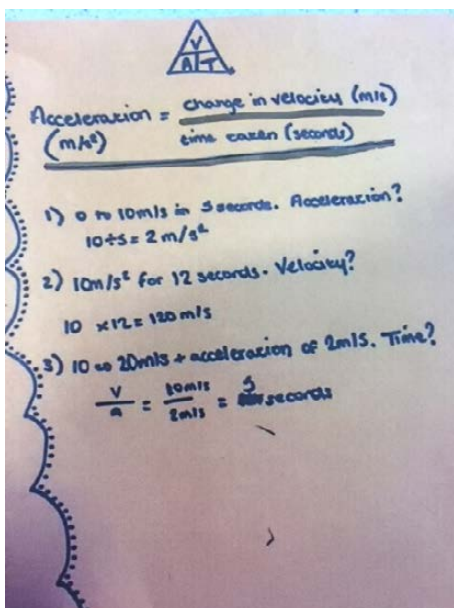 V
A T
Acceleration = change in velocity (m/s)
(m/s²) time taken (seconds)
1) 0 to 10m/s in 5 seconds. Acceleration?
10÷5= 2 m/s²
2) 10m/s² for 12 seconds. Velocity?
10 ×12= 120m/s
3) 10 to 20m/s + acceleration of 2m/s. Time?
V/a = 10m/s/2m/s = 5 seconds